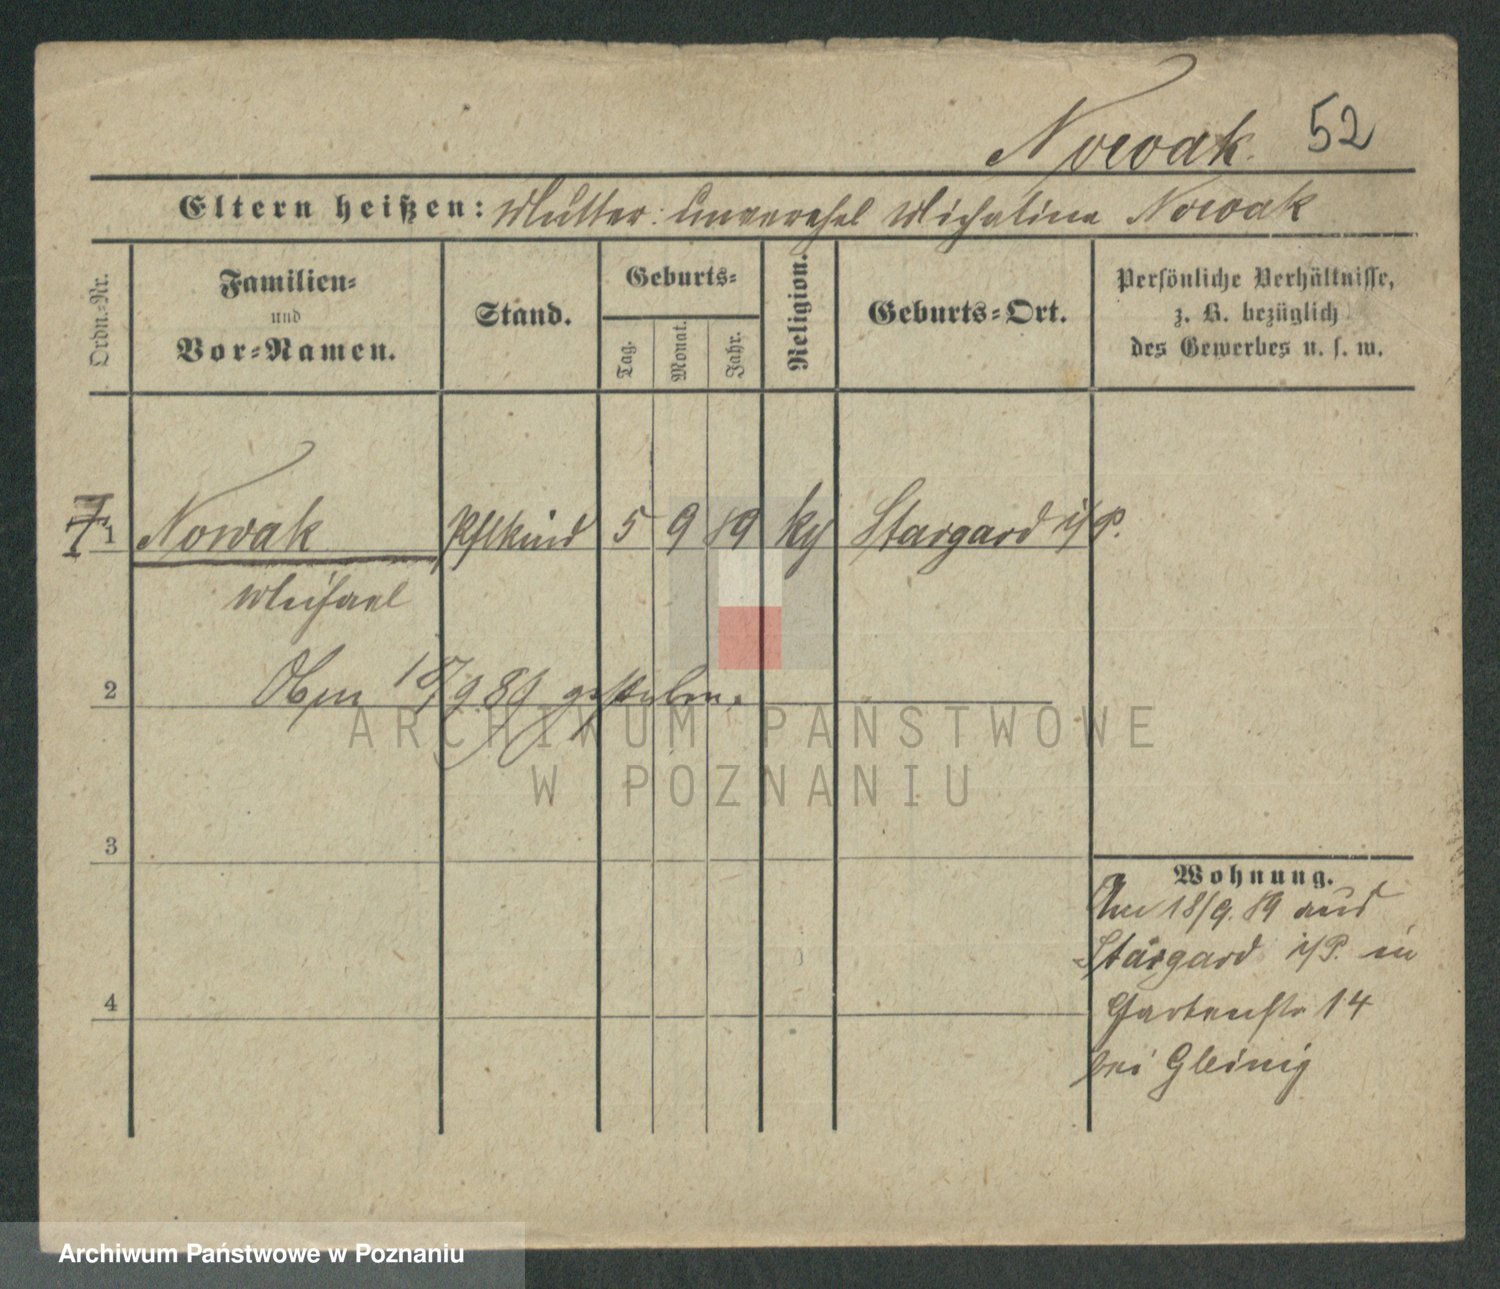 Nowak. 52
Eltern heißen: Mutter: unverehel Michalina Nowak
Ordn.-Nr.
Familien-
und
Vor-Namen.
Stand.
Geburts-
Tag.
Monat.
Jahr.
Religion.
Geburts-Ort.
Persönliche Verhältnisse,
z. B. bezüglich
des Gewerbes u. s. w.
1 Nowak Pflkind 5 9 89 Stargard i/P.
Michael
2 9 89 gestorben.
3
4
Wohnung.
Am 18/9. 89 aus
Stargard i/P. in
Gartenstr 14
bei Gleinig
ARCHIWUM PAŃSTWOWE
W POZNANIU
Archiwum Państwowe w Poznaniu